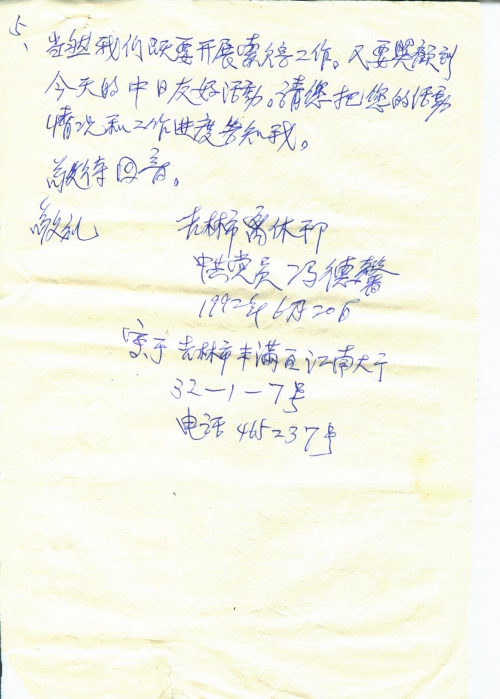 5、
当然我们既要开展索赔工作。又要兴顾到
今天的中日友好活动。请您把您的活动
情况和工作进度告知我。
敬待回音。
敬礼 吉林市离休干部
中共党员 冯德馨
1992年6月20日
寄于吉林市丰满区江南大厅
32-1-7号
电话 465237号